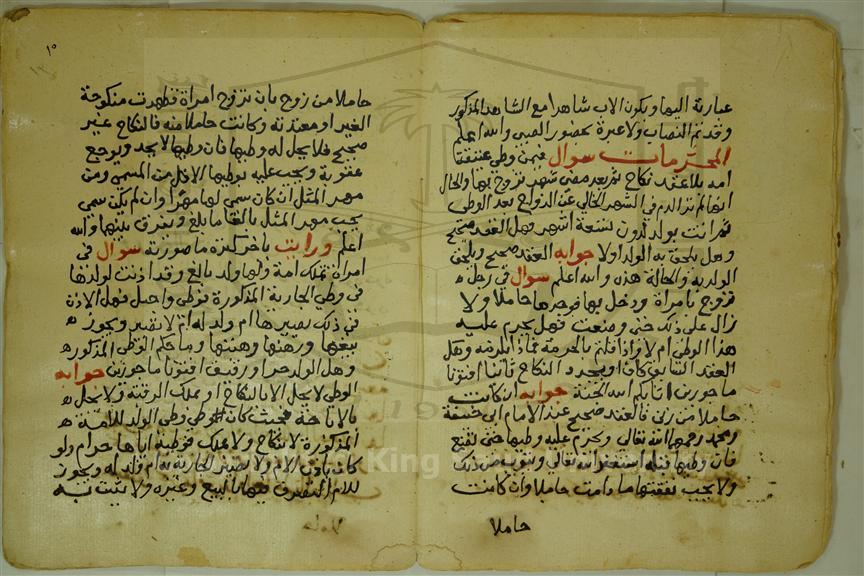 عبارته اليها ويكون الاب شاهدا مع الشاهد المذكور
وقد تم النصاب ولا عبرة بحضور الصبي والله اعلم
المحرمات سوال فيمن وطي عتيقة
امه بلا عقد نكاح ثم بعد مضي شهر تزوج بها والحال
انها لم تر الدم في الشهر الخالي عن الزواج بعد الوطي
ثم اتت بولد لدون تسعة اشهر وهل العقد صحيح
وهل يلحق به الولد اولا جوابه العقد صحيح ويلحق
الولد به والحالة هذه والله اعلم سوال في رجل
تزوج بامراة ودخل بها فوجدها حاملا ولا
زال على ذلك حتى وضعت فهل يحرم عليه
هذا الوطي ام لا واذا قلتم بالحرمة فماذا يلزمه وهل
العقد السابق كاف او يجدد النكاح ثانيا افتونا
ماجورين اثابكم الله الجنة جوابه ان كانت
حاملا من زنى فالعقد صحيح عند الامام ابي حنيفة
ومحمد رحمهما الله تعالى ويحرم عليه وطيها حتى تضع
فان وطيها قبله استغفر الله تعالى ويتوب من ذلك
ولا يجب نفقتها ما دامت حاملا وان كانت
حاملا
١٠
حاملا من زوج بان تزوج امراة فظهرت منكوحة
الغير او معتدته وكانت حاملا منه فالنكاح غير
صحيح فلا يحل له وطيها فان وطيها لا يحد ويوجع
عقوبة ويجب عليه بوطيها الاقل من المسمى ومن
مهر المثل ان كان سمى لها مهرا وان لم يكن سمى
يجب مهر المثل بالغا ما بلغ ويفرق بينهما والله
اعلم ورايت باخر كنزه ما صورته سوال في
امراة تملك امة ولها ولد بالغ وقد اذنت لولدها
في وطي الجارية المذكورة فوطي واحبل فهل الاذن
في ذلك يصيرها ام ولد له ام لا تصير ويجوز
بيعها ورهنها وهبتها وما حكم الوطي المذكور
وهل الولد حر او رقيق افتونا ماجورين جوابه
الوطي لا يحل الا بالنكاح او ملك الرقبة ولا يحل
بالاباحة فحيث كان الوطي وطي الولد للامة
المذكورة لا بنكاح ولا ملك فوطيه اياها حرام ولو
كان باذن الام ولا تصير الجارية به ام ولد له ويجوز
للام التصرف فيها بالبيع وغيره ولا يثبت به